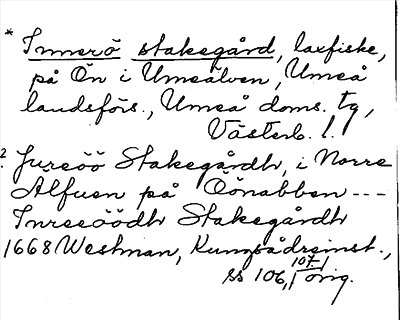 * Innerö stakegård, laxfiske,
på Ön i Umeälven, Umeå
landsförs., Umeå doms. tg,
Västerb. l.
2. Jureöö Stakegårdh, i Norre
Älfuen på Öönabben ---
Inreeöödh Stakegårdh
1668 Westman, Kungsådreinst.,
ss 106, 107. 1 orig.